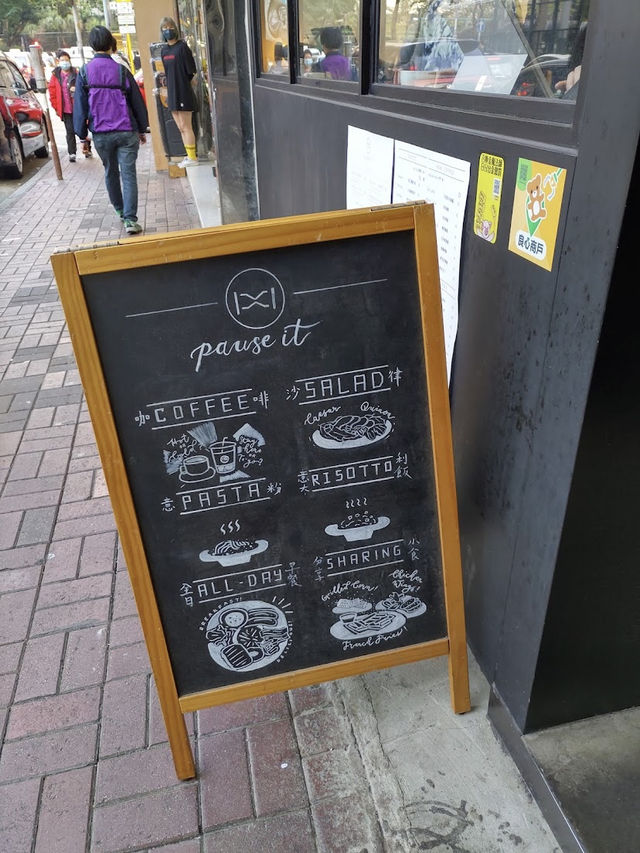 pause it
咖 COFFEE 啡
意 PASTA 粉
全日 ALL-DAY 早餐
BREAKFAST!
沙 SALAD 律
Caesar Quinoa
意大 RISOTTO 利飯
分享 SHARING 小食
Grilled Corn!
Chicken Wings!
French Fries!
良心商戶